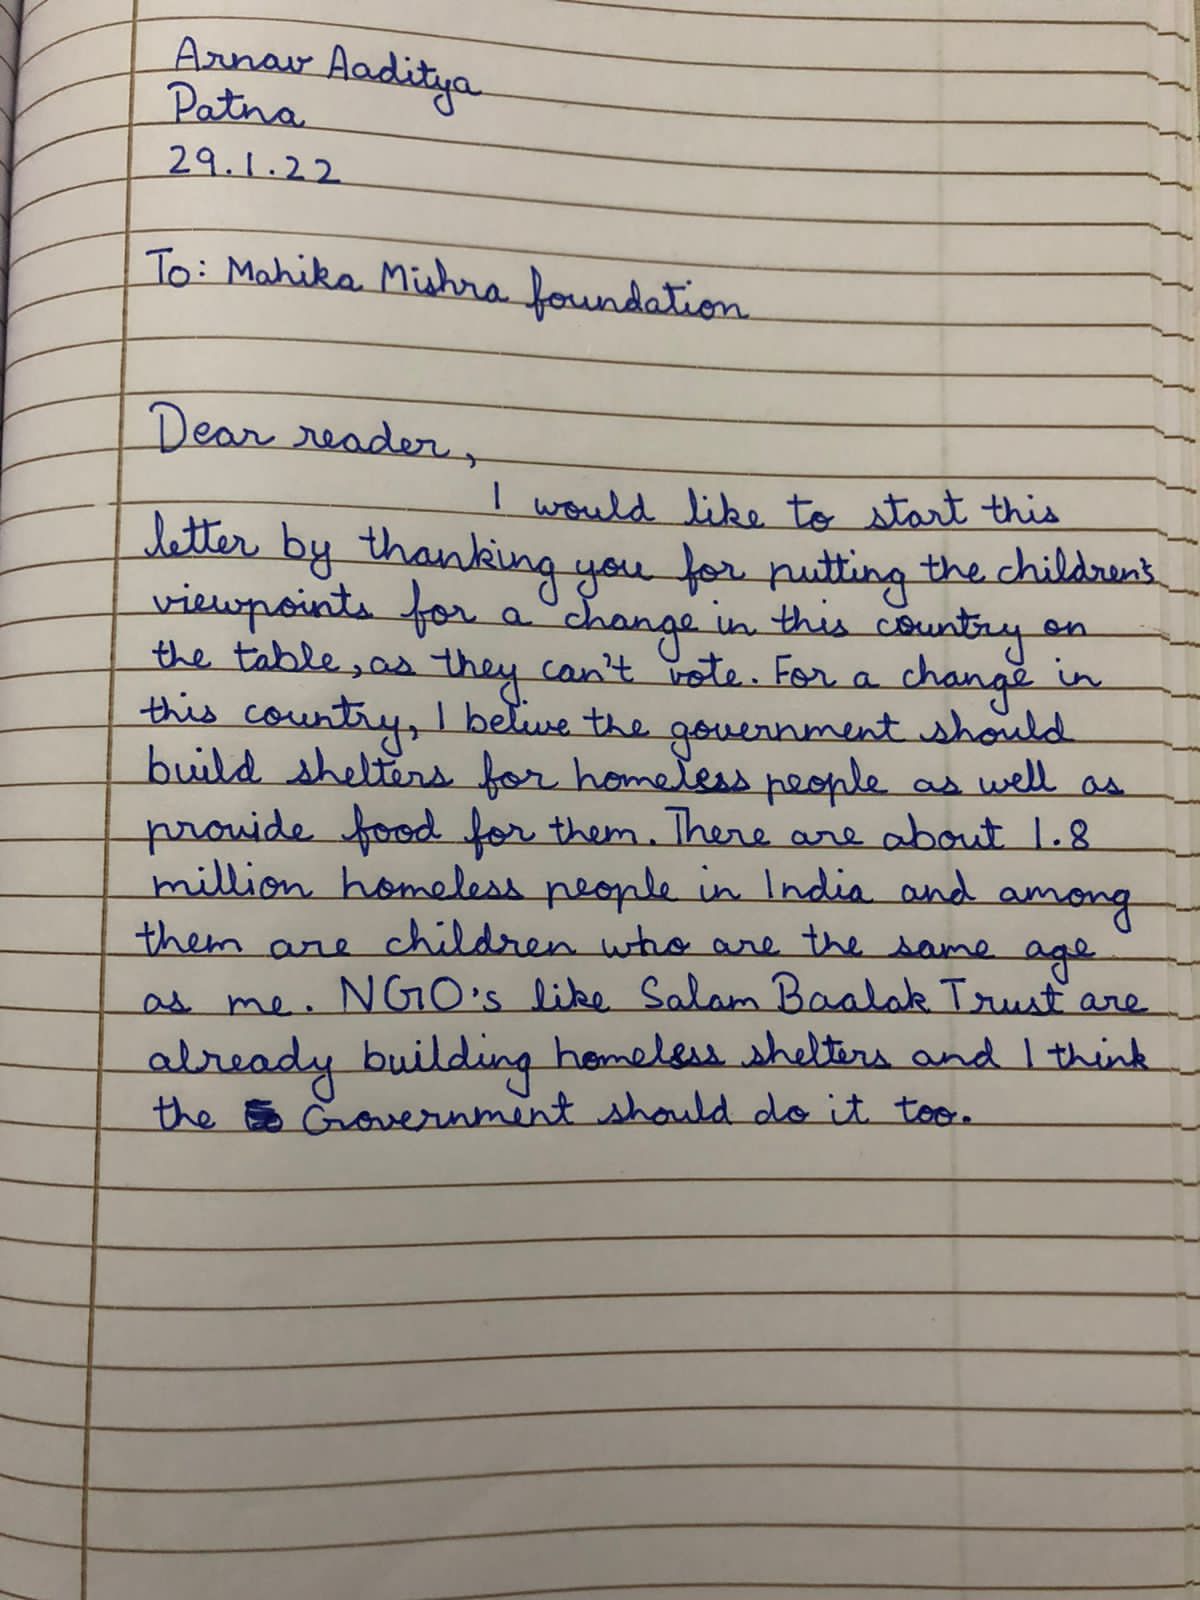 Arnav Aaditya
Patna
29.1.22
To: Mahika Mishra foundation
Dear reader,
I would like to start this
letter by thanking you for putting the children's
viewpoints for a change in this country on
the table, as they can't vote. For a change in
this country, I belive the government should
build shelters for homeless people as well as
provide food for them. There are about 1.8
million homeless people in India and among
them are children who are the same age
as me. NGO's like Salam Baalak Trust are
already building homeless shelters and I think
the Government should do it too.